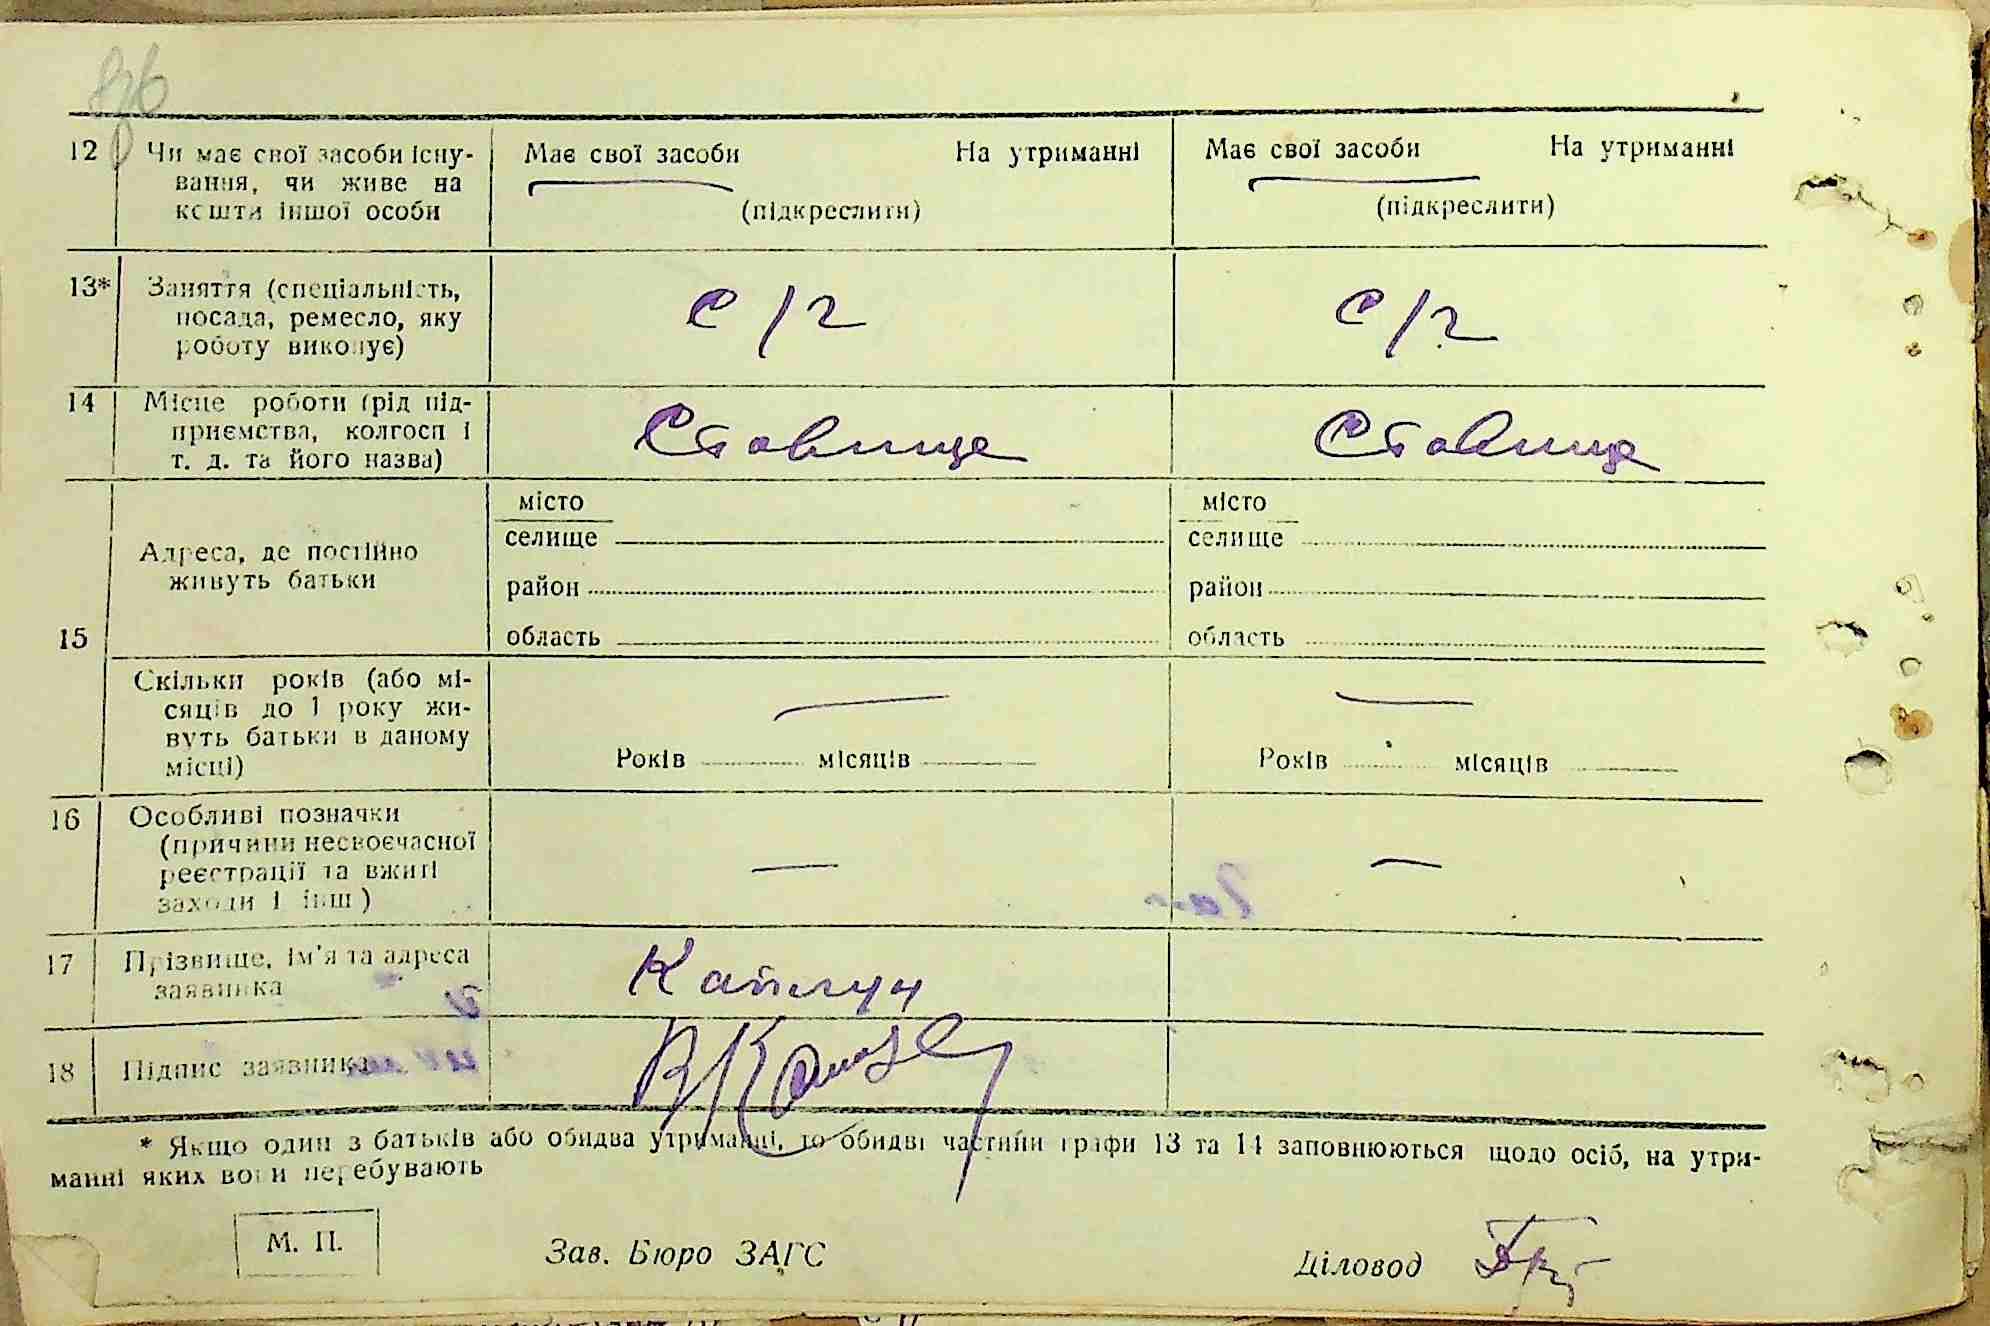 12 Чи має свої засоби існу- Має свої засоби На утриманні Має свої засоби На утриманні
вання, чи живе на
кошти іншої особи (підкреслити) (підкреслити)
13* Заняття (спеціальність,
посада, ремесло, яку с/г с/г
роботу виконує)
14 Місце роботи (рід під-
приємства, колгосп і Ставище Ставище
т. д. та його назва)
15 Адреса, де постійно
живуть батьки
місто місто
селище селище
район район
область область
Скільки років (або мі-
сяців до 1 року жи-
вуть батьки в даному
місці) Років місяців Років місяців
16 Особливі позначки
(причини несвоєчасної
реєстрації та вжиті — —
заходи і інш)
17 Прізвище, ім'я та адреса
заявника
18 Підпис заявника
* Якщо один з батьків або обидва утриманні, то обидві частини графи 13 та 14 заповнюються щодо осіб, на утри-
манні яких вони перебувають
М. П. Зав. Бюро ЗАГС Діловод